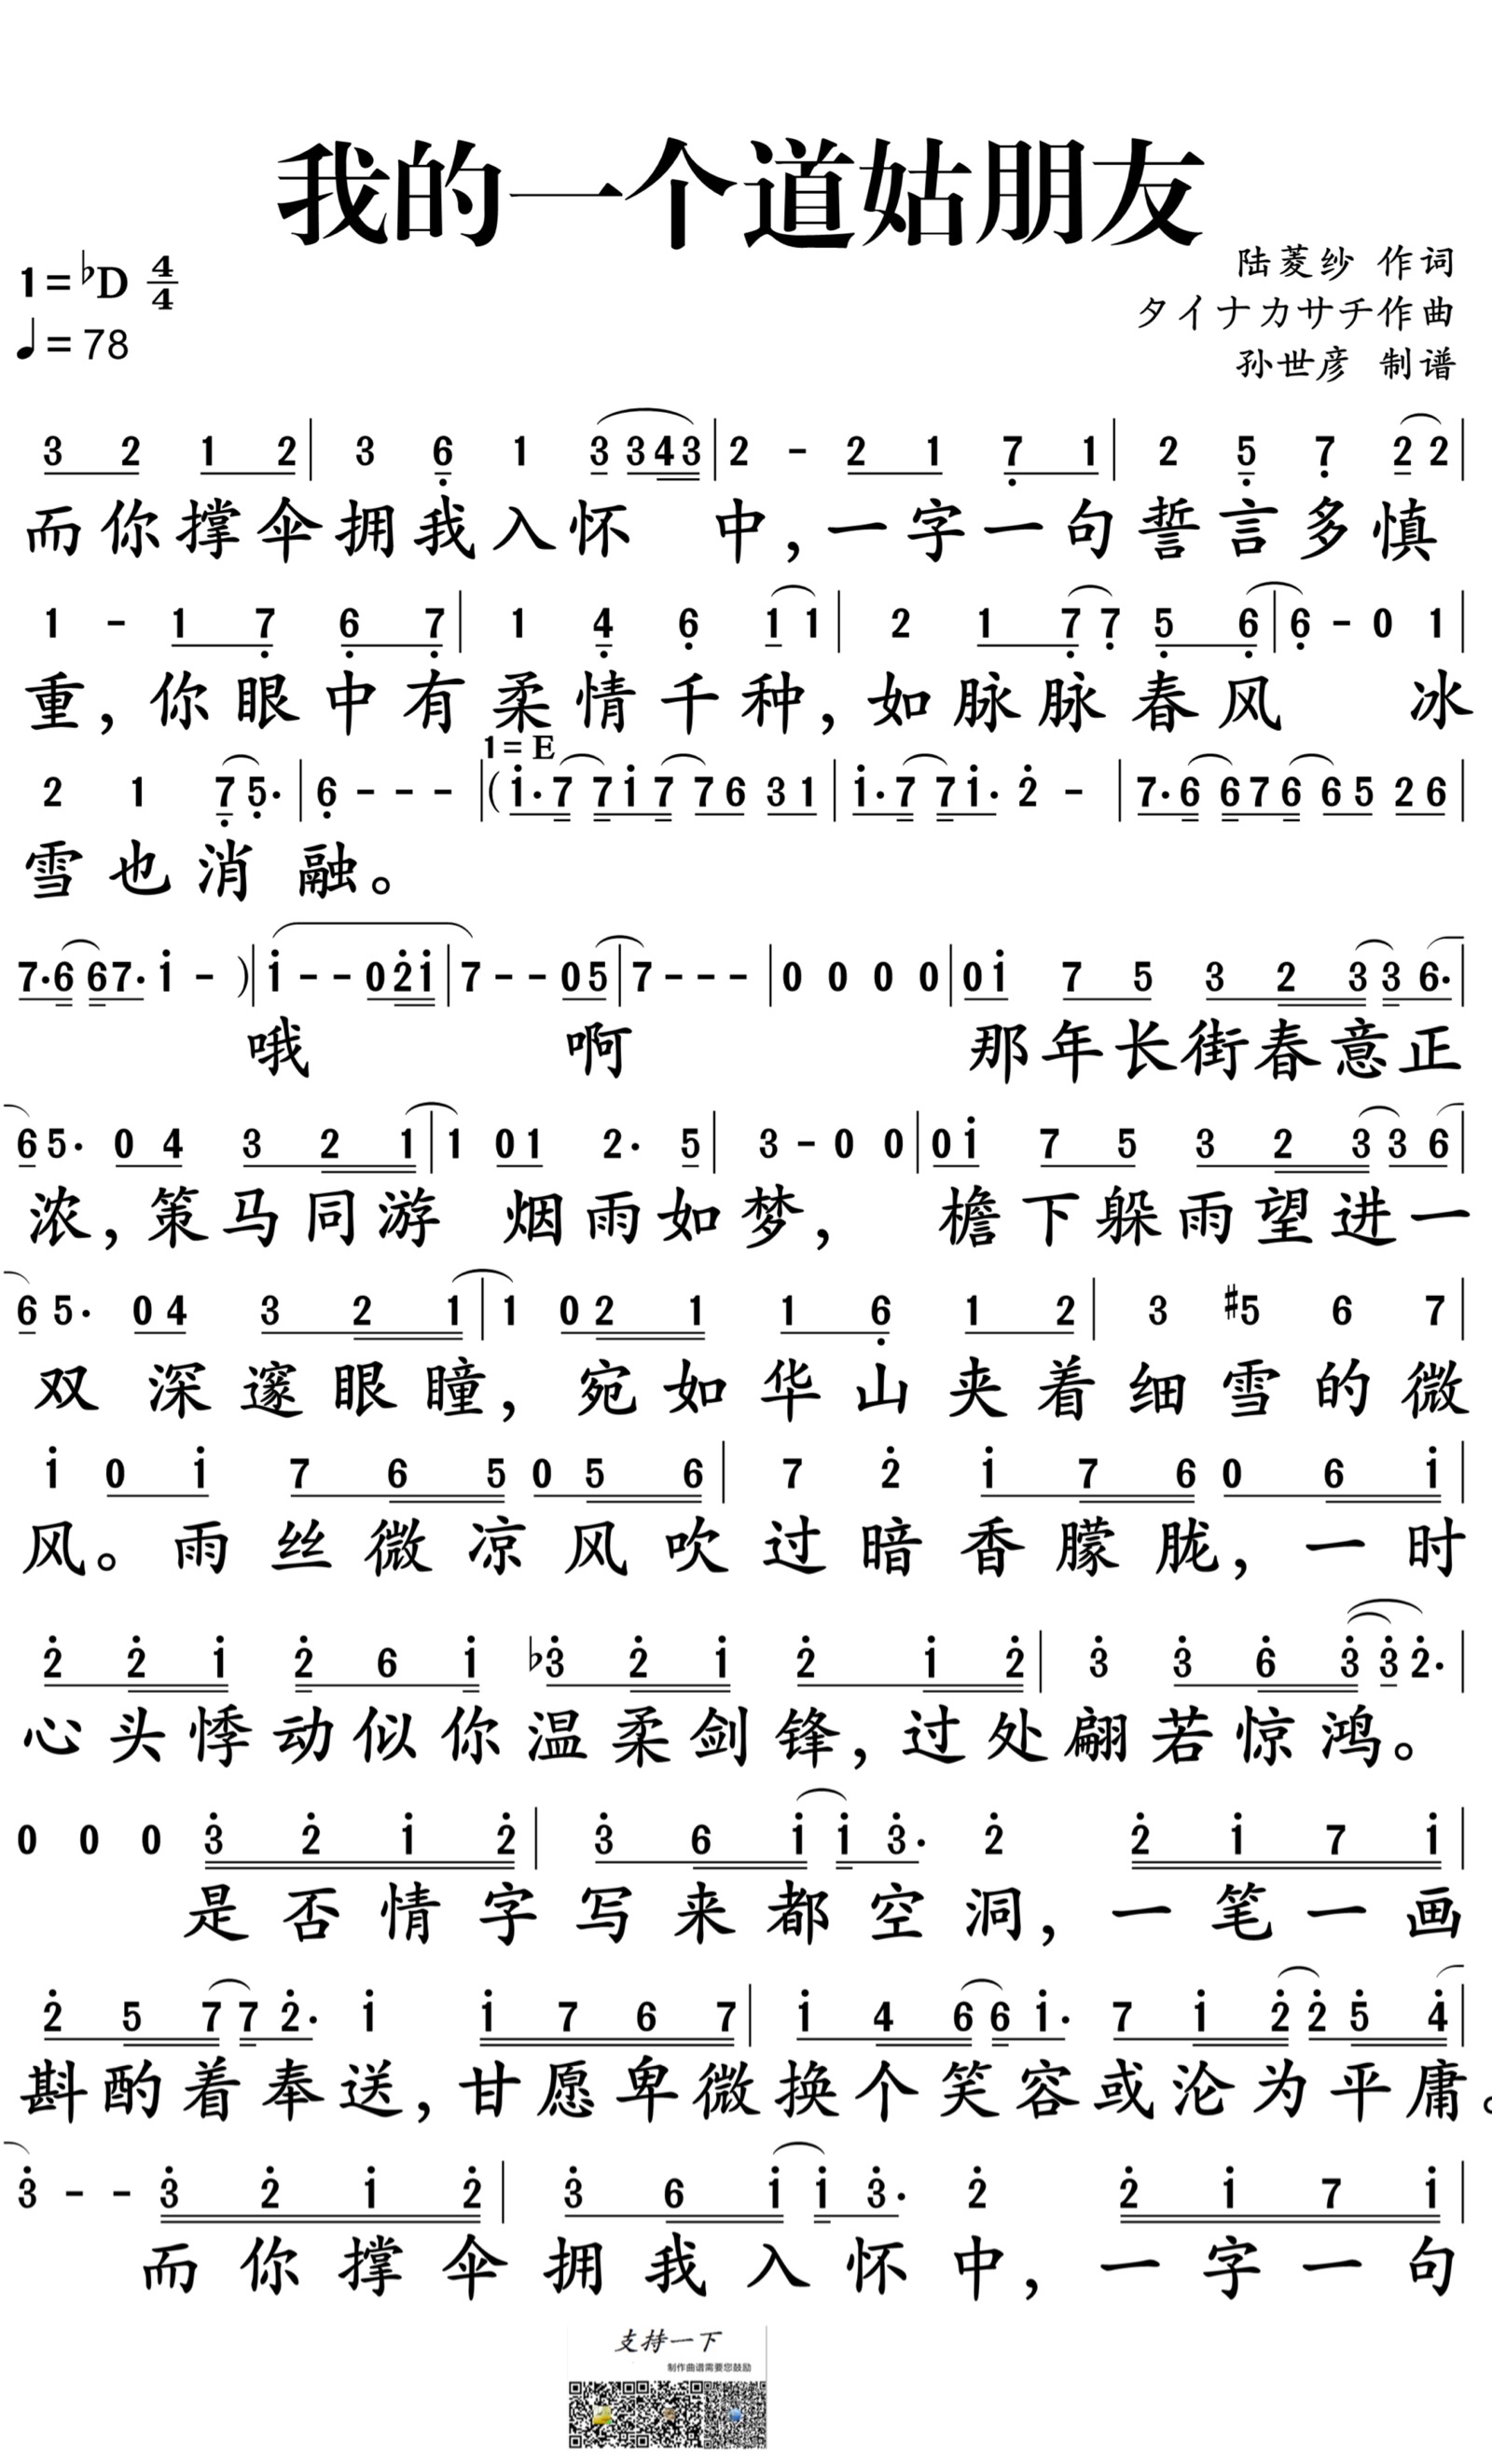 我的一个道姑朋友
1=♭D 4/4
陆菱纱 作词
タイナカサチ作曲
♩=78
孙世彦 制谱
3 2 1 2 | 3 6 1 3 3 4 3 | 2 - 2 1 7 1 | 2 5 7 2 2 |
而你撑伞拥我入怀 中,一字一句誓言多慎
1 - 1 7 6 7 | 1 4 6 1 1 | 2 1 7 7 5 6 | 6 - 0 1 |
重,你眼中有柔情千种,如脉脉春风 冰
1=E
2 1 7 5· | 6 - - - | (1·7 7 1 7 7 6 3 1 | 1·7 7 1· 2 - | 7·6 6 7 6 6 5 2 6 |
雪也消 融。
7·6 6 7· 1 - ) | 1 - - 0 2 1 | 7 - - 0 5 | 7 - - - | 0 0 0 0 | 0 1 7 5 3 2 3 3 6· |
哦 啊 那年长街春意正
6 5· 0 4 3 2 1 | 1 0 1 2· 5 | 3 - 0 0 | 0 1 7 5 3 2 3 3 6 |
浓,策马同游 烟雨如梦, 檐下躲雨望进一
6 5· 0 4 3 2 1 | 1 0 2 1 1 6 1 2 | 3 #5 6 7 |
双 深邃眼瞳,宛如华山夹着细雪的微
1 0 1 7 6 5 0 5 6 | 7 2 1 7 6 0 6 1 |
风。雨丝微凉风吹过暗香朦胧,一时
2 2 1 2 6 1 ♭3 2 1 2 1 2 | 3 3 6 3 3 2· |
心头悸动似你温柔剑锋,过处翩若惊鸿。
0 0 0 3 2 1 2 | 3 6 1 1 3· 2 2 1 7 1 |
是否情字写来都空洞,一笔一画
2 5 7 7 2· 1 1 7 6 7 | 1 4 6 6 1· 7 1 2 2 5 4 |
斟酌着奉送,甘愿卑微换个笑容或沦为平庸。
3 - - 3 2 1 2 | 3 6 1 1 3· 2 2 1 7 1 |
而你撑伞拥我入怀中,一字一句
支持一下
制作曲谱需要您鼓励